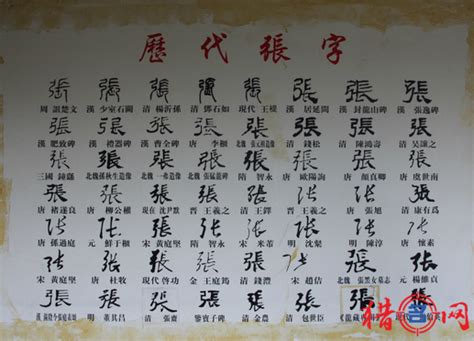 歷代張字
張 張 張 張 張 張 張 張
周 詛楚文 漢 少室石闕 清 楊沂孫 清 鄧石如 現代 王禔 漢 居延簡 漢 封龍山碑 漢
張 張 張 張 張 張 張 張
漢 肥致碑 漢 禮器碑 漢 曹全碑 唐 北魏 張元祖造像 清 錢松 清 陳鴻壽 清 吳讓之
張 張 張 張 張 張 張 張
三國 鍾繇 北魏 孫秋生造像 北魏 一弗造像 北魏 張猛龍碑 隋 智永 唐 歐陽詢 唐 顏真卿 唐 虞世南
張 張 張 張 張 張 張 張
唐 褚遂良 唐 柳公權 現在 沈尹默 晉 王羲之 清 王鐸 晉 王羲之 唐 張旭 清 康有爲
張 張 張 張 張 張 張 張
唐 孫過庭 元 鮮于樞 宋 黃庭堅 隋 智永 宋 米芾 明 沈粲 明 陳淳 唐 懷素
張 張 張 張 張 張 張 張
宋 黃庭堅 唐 杜牧 現代 啓功 金 王庭筠 清 錢灃 宋 趙佶 北魏 張黑女墓志 元 楊維貞
張 張 張 張 張 張 張
明 董其昌 清 寶子碑 清 金農 清 包世臣 《龍藏寺碑》 現代
猎 网